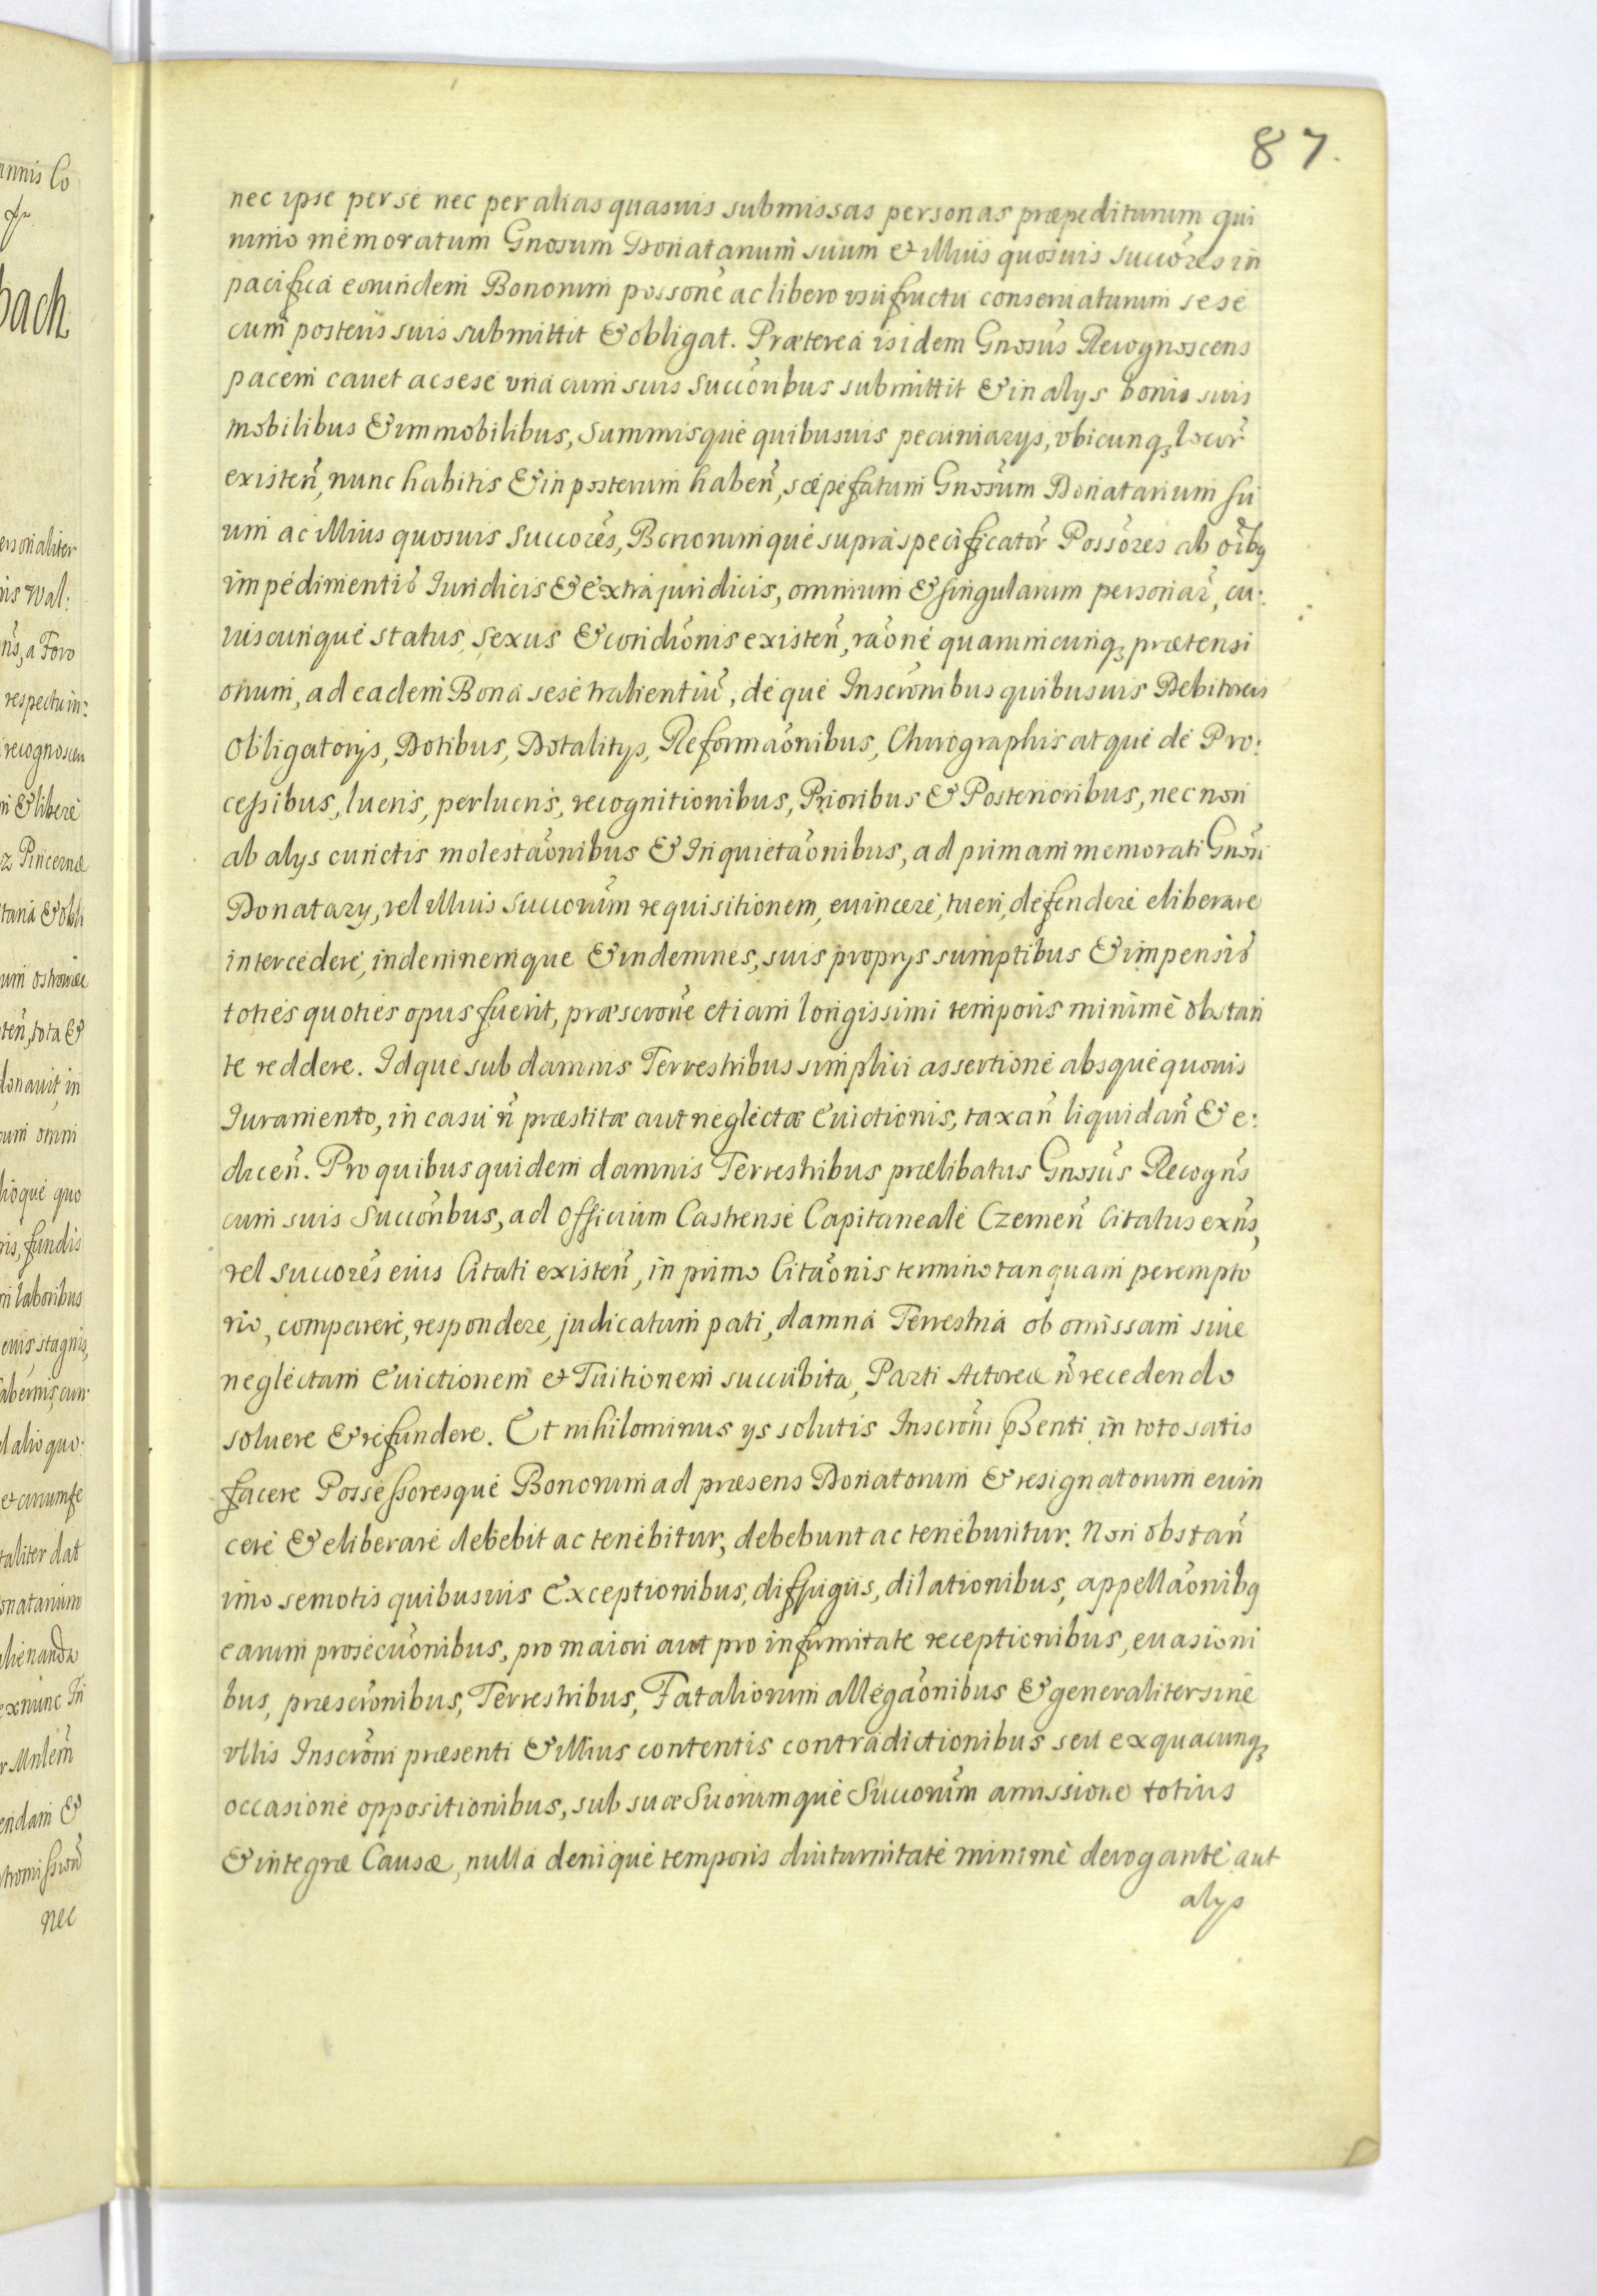 87.
nec ipse per se nec per alias quasuis submissas personas præpediturum qui
nimo memoratum Gnosum Donatarium suum et illius quosuis succores in
pacifica eorundem Bonorum possone ac libero usufructu conseruaturum sese
cum posteris suis submittit & obligat. Præterea isidem Gnosus Recognoscens
pacem cauet ac sese vna cum suis succoribus submittit & in alys bonis suis
mobilibus & immobilibus, summisque quibusuis pecuniarys, vbicunq locor
existen, nunc habitis & in posterum haben, sæpefatum Gnosum Donatarium su
um ac illius quosuis succores, Bonorumque supra specificator Possores ab oibq
impedimentis Iuridicis & extra juridicis, omnium & singularum personar, cu:
iuscunque status, sexus & condionis existen, raone quarumcunq prætensi
onum, ad eadem Bona sese trahentiu, deque Inscronibus quibusuis Debitoreis
Obligatorijs, Dotibus, Dotalitys, Reformaonibus, Chirographis atque de Pro:
cessibus, lucris, perlucris, recognitionibus, Prioribus & Posterioribus, nec non
ab alys cunctis molestaonibus & Inquietaonibus, ad primam memorati Gnosi
Donatary, vel illius succorum requisitionem, euincere, tueri, defendere eliberare
intercedere, indemnemque & indemnes, suis proprys sumptibus & impensis
toties quoties opus fuerit, præscrone etiam longissimi temporis minime obstan
te reddere. Idque sub damnis Terrestribus simplici assertione absque quouis
Iuramento, in casu n præstitæ aut neglectæ Euictionis, taxan liquidan & e:
dicen. Pro quibus quidem damnis Terrestribus prælibatus Gnosus Recogns
cum suis succoribus, ad officium Castrense Capitaneale Czemen Citatus exns,
vel succores eius Citati existen, in primo Citaonis termino tanquam perempto
rio, comparere, respondere, judicatum pati, damna Terrestria ob omissam siue
neglectam Euictionem et Tuitionem succubita, Parti Actoreæ n recedendo
soluere & refundere. Et nihilominus ys solutis Inscroni pnsenti in toto satis
facere Possessoresque Bonorum ad præsens Donatorum & resignatorum euin
cere & eliberare debebit ac tenebitur, debebunt ac tenebuntur. Non obstan
imo semotis quibusuis Exceptionibus, diffugiis, dilationibus, appellaonibq
earum prosecuonibus, pro maiori aut pro infirmitate receptionibus, euasioni
bus, præscronibus, Terrestribus, Fataliorum allegaonibus & generaliter sine
vllis Inscroni præsenti & illius contentis contradictionibus seu ex quacunq
occasione oppositionibus, sub suæ Suorumque Succorum amissione totius
& integræ Causæ, nulla denique temporis diuturnitate minime derogante aut
alys